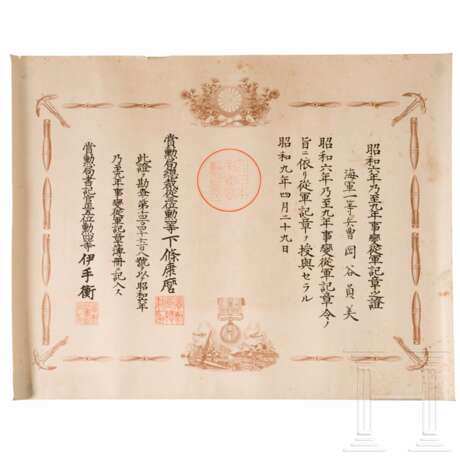 昭和六年乃至九年事變從軍記章之證
海軍一等兵曹 岡谷員美
昭和六年乃至九年事變從軍記章令ノ
旨ニ依リ從軍記章ヲ授與セラル
昭和九年四月二十九日
賞勲局總裁從三位勲二等下條康麿
此證ヲ勘査シ第
號ヲ以テ昭和六年
乃至九年事變從軍記章簿册ニ記入ス
賞勲局書記官正五位勲四等伊手衡